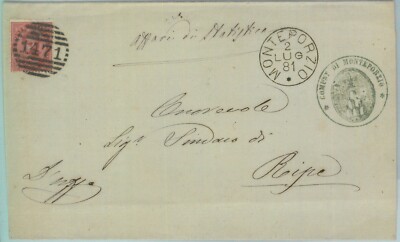 1471
affari di Statistica
MONTEPORZIO
2
LUG
81
COMUNE DI MONTEPORZIO
Onorevole
Sig. Sindaco di
Ripe